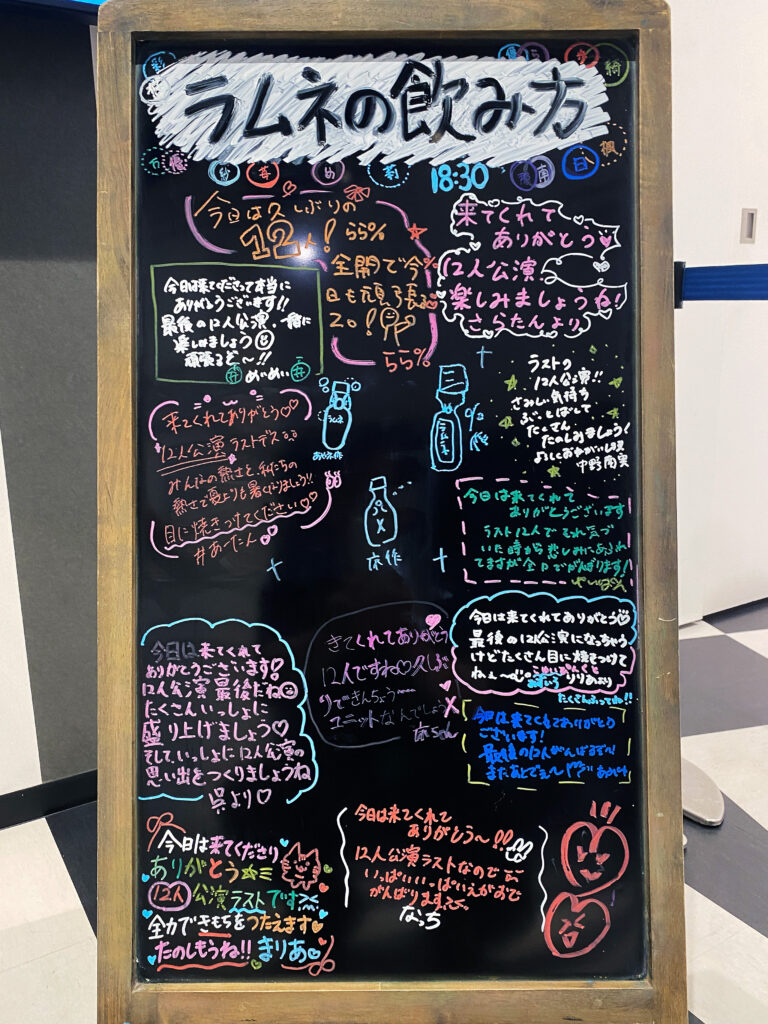 ラムネの飲み方
18:30
今日は久しぶりの
12人!
らら%
全開で今
日も頑張る
ZO!
らら%
来てくれて
ありがとう♡
12人公演
楽しみましょうね!
さらたんより
今日は来てくださって本当に
ありがとうございます!!
最後の12人公演、一緒に
楽しみましょう
頑張るぞ〜!!
めいめい
ラストの
12人公演!!
さみしい気持ち
ふっとばして
たくさん
たのしみましょう!
よろしくおねがいします
来てくれてありがとう♡♡
12人公演ラストデス
みんなの熱さと私たちの
熱さで夏よりも暑くなりましょう!!
目に焼きつけてください♡
#あーたん
ラムネ
あやネ作
ラムネ
衣作
今日は来てくれて
ありがとうございます
ラスト12人でそれ気づ
いた時から悲しみにあふれ
てますが全力でがんばります!
今日は来てくれて
ありがとうございます!
12人公演最後だね
たくさんいっしょに
盛り上げましょう♡
そして、いっしょに12人公演の
思い出をつくりましょうね
呉より♡
きてくれてありがとう
12人ですね♡久しぶ
りできんちょう〜
ユニットなんでしょう
今日は来てくれてありがとう
最後の12人公演になっちゃう
けどたくさん目に焼きつけて
ねぇ〜
りりあより
たくさんふってね!!
今日は来てくれてありがとう
ございます!
最後の12人がんばるぞ!!
またあとでぇ〜
今日は来てくださり
ありがとう
12人公演ラストです
全力できもちをつたえます
たのしもうね!! まりあ
今日は来てくれて
ありがとう〜!!
12人公演ラストなので
いっぱいいっぱいえがおで
がんばります
なっち